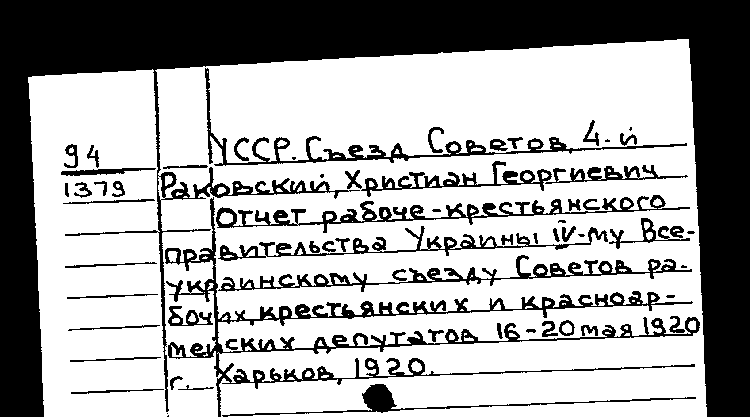 94
1379
УССР. Съезд Советов, 4-й
Раковский, Христиан Георгиевич
Отчет рабоче-крестьянского
правительства Украины IV-му Все-
украинскому съезду Советов ра-
бочих, крестьянских и красноар-
мейских депутатов 16-20 мая 1920
г. Харьков, 1920.